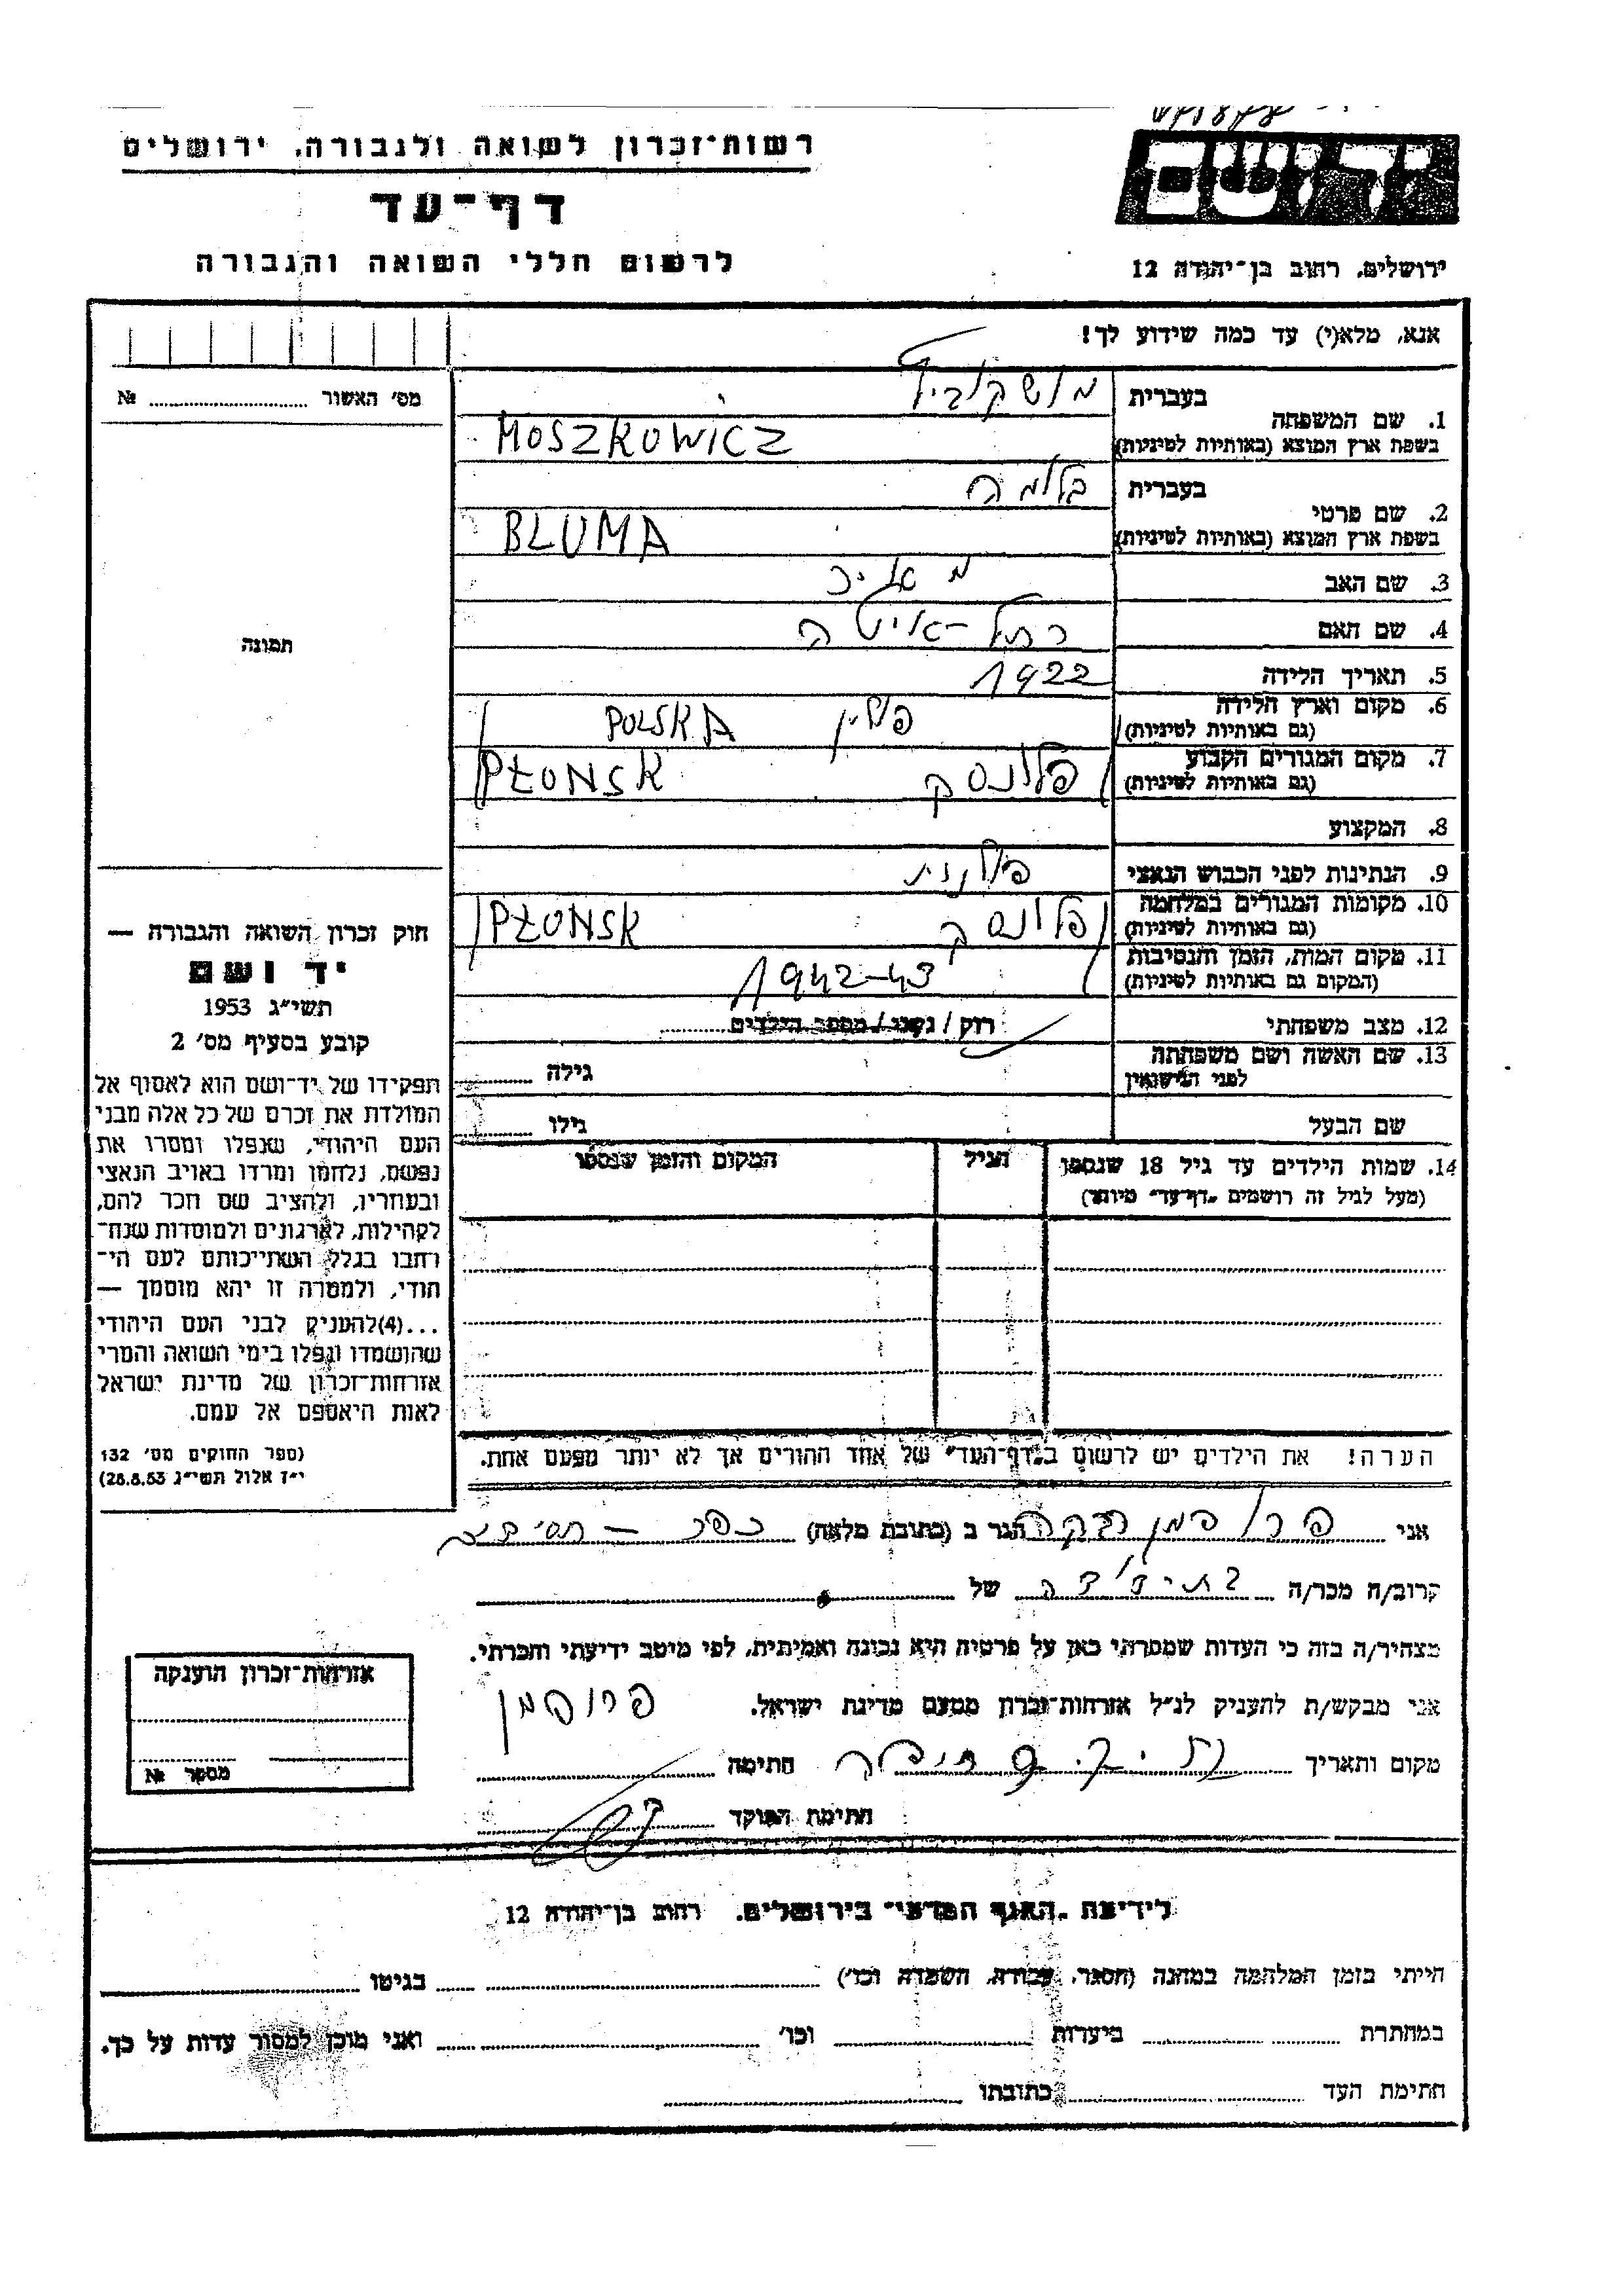 רשות־זכרון לשואה ולגבורה, ירושלים
יד ושם
דף־עד
לרשום חללי השואה והגבורה
ירושלים, רחוב בן־יהודה 12
אנא, מלא(י) עד כמה שידוע לך!
מס׳ האשור № 
1. שם המשפחה
בעברית מושקוביץ
בשפת ארץ המוצא (באותיות לטיניות) MOSZKOWICZ
2. שם פרטי
בעברית בלומה
בשפת ארץ המוצא (באותיות לטיניות) BLUMA
3. שם האב מאיר
4. שם האם רחל-איטה
5. תאריך הלידה 1922
6. מקום וארץ הלידה (גם באותיות לטיניות) פולין POLSKA
7. מקום המגורים הקבוע (גם באותיות לטיניות) פלונסק PŁONSK
8. המקצוע
9. הנתינות לפני הכבוש הנאצי פולנית
10. מקומות המגורים במלחמה (גם באותיות לטיניות) פלונסק PŁONSK
11. מקום המות, הזמן והנסיבות (המקום גם באותיות לטיניות) 1942-43
12. מצב משפחתי רוק / נשוי / מספר הילדים
13. שם האשה ושם משפחתה לפני הנישואין גילה
שם הבעל גילו
14. שמות הילדים עד גיל 18 שנספו
(מעל לגיל זה רושמים „דף־עד״ מיוחד)
הגיל
המקום והזמן שנספו
הערה! את הילדים יש לרשום ב„דף־העד״ של אחד ההורים אך לא יותר מפעם אחת.
תמונה
חוק זכרון השואה והגבורה —
יד ושם
תשי״ג 1953
קובע בסעיף מס׳ 2
תפקידו של יד־ושם הוא לאסוף אל
המולדת את זכרם של כל אלה מבני
העם היהודי, שנפלו ומסרו את
נפשם, נלחמו ומרדו באויב הנאצי
ובעוזריו, ולהציב שם וזכר להם,
לקהילות, לארגונים ולמוסדות שנח־
רבו בגלל השתייכותם לעם הי־
הודי, ולמטרה זו יהא מוסמך —
...(4)להעניק לבני העם היהודי
שהושמדו ונפלו בימי השואה והמרי
אזרחות־זכרון של מדינת ישראל
לאות היאספם אל עמם.
(ספר החוקים מס׳ 132
י״ז אלול תשי״ג 28.8.53)
אני פרוכמן רבקה הגר ב (כתובת מלאה) כפר -
קרוב/ה מכר/ה בת-דודה של
מצהיר/ה בזה כי העדות שמסרתי כאן על פרטיה היא נכונה ואמיתית, לפי מיטב ידיעתי והכרתי.
אני מבקש/ת להעניק לנ״ל אזרחות־זכרון מטעם מדינת ישראל.
מקום ותאריך חתימה
חתימת הפוקד
אזרחות־זכרון הוענקה
מספר №
לידיעת „האגף המדעי״ בירושלים, רחוב בן־יהודה 12
הייתי בזמן המלחמה במחנה (הסגר, עבודה, השמדה וכו׳) בגיטו
במחתרת ביערות וכו׳ ואני מוכן למסור עדות על כך.
חתימת העד כתובתו